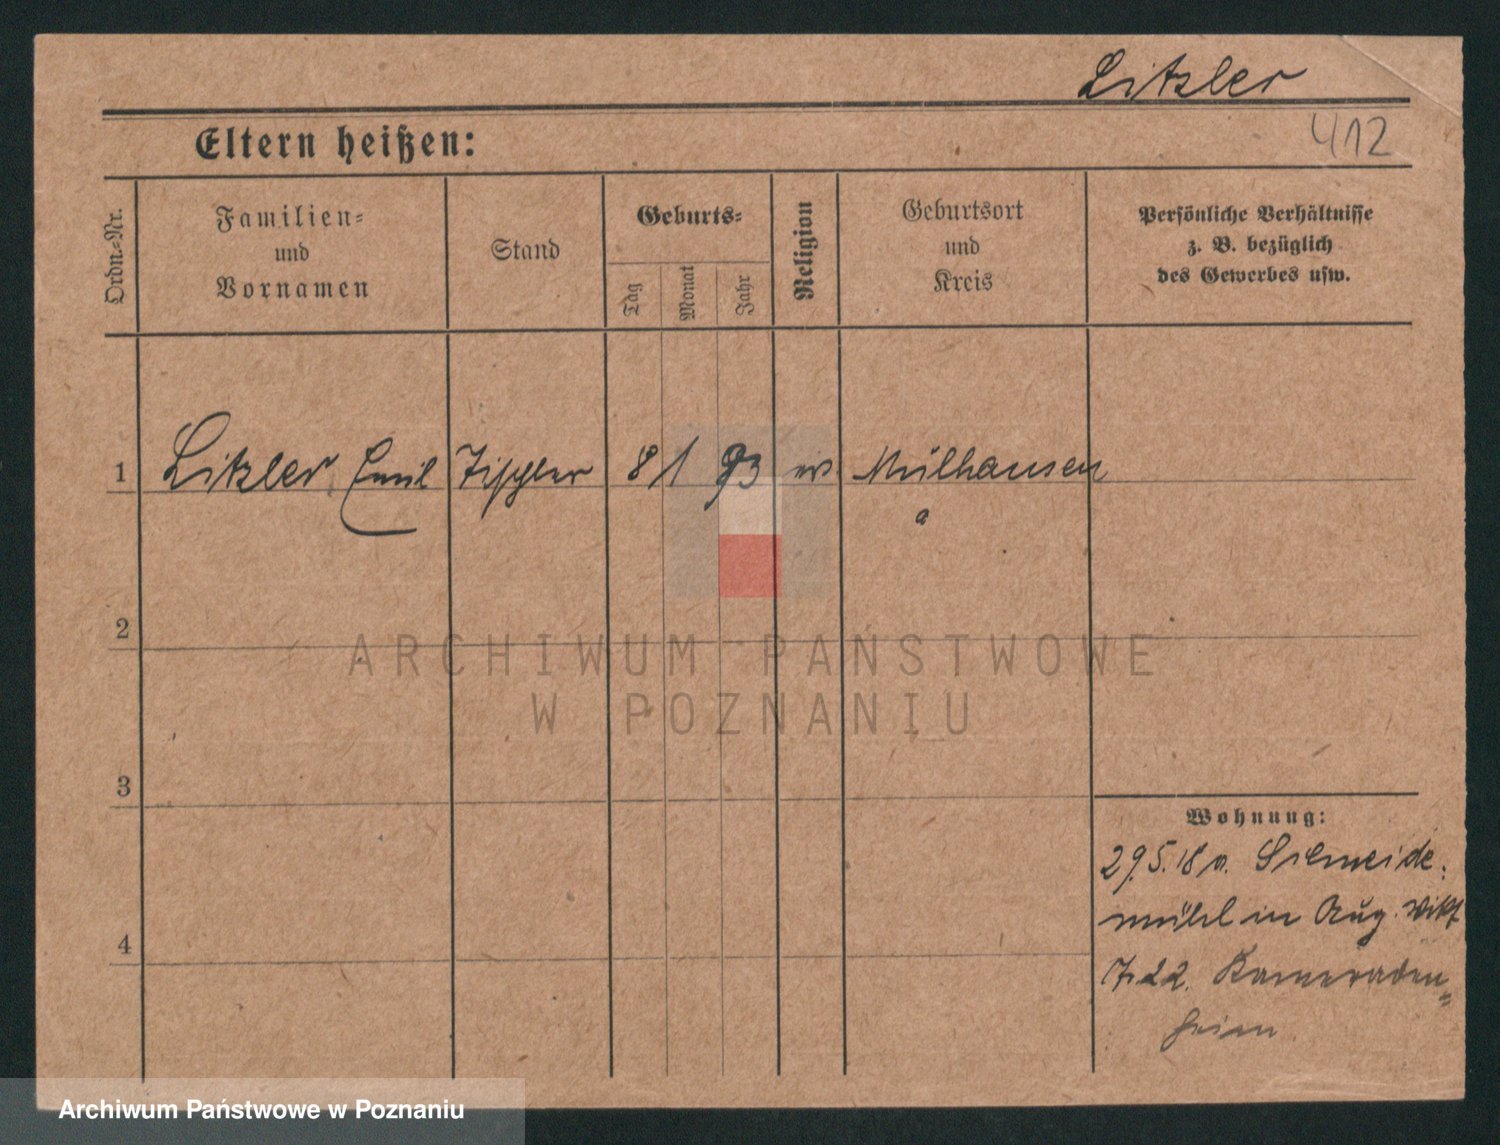 Litzler
412
Eltern heißen:
Ordn.=Nr.
Familien=
und
Vornamen
Stand
Geburts=
Tag
Monat
Jahr
Religion
Geburtsort
und
Kreis
Persönliche Verhältnisse
z. B. bezüglich
des Gewerbes usw.
1 Litzler Emil Tischler 8 1 93 Mülhausen
2
ARCHIWUM PAŃSTWOWE
W POZNANIU
3
Wohnung:
29.5.18 a. Schneide=
mühl in Aug. Vikt
4
7.22. Kameraden=
heim
Archiwum Państwowe w Poznaniu